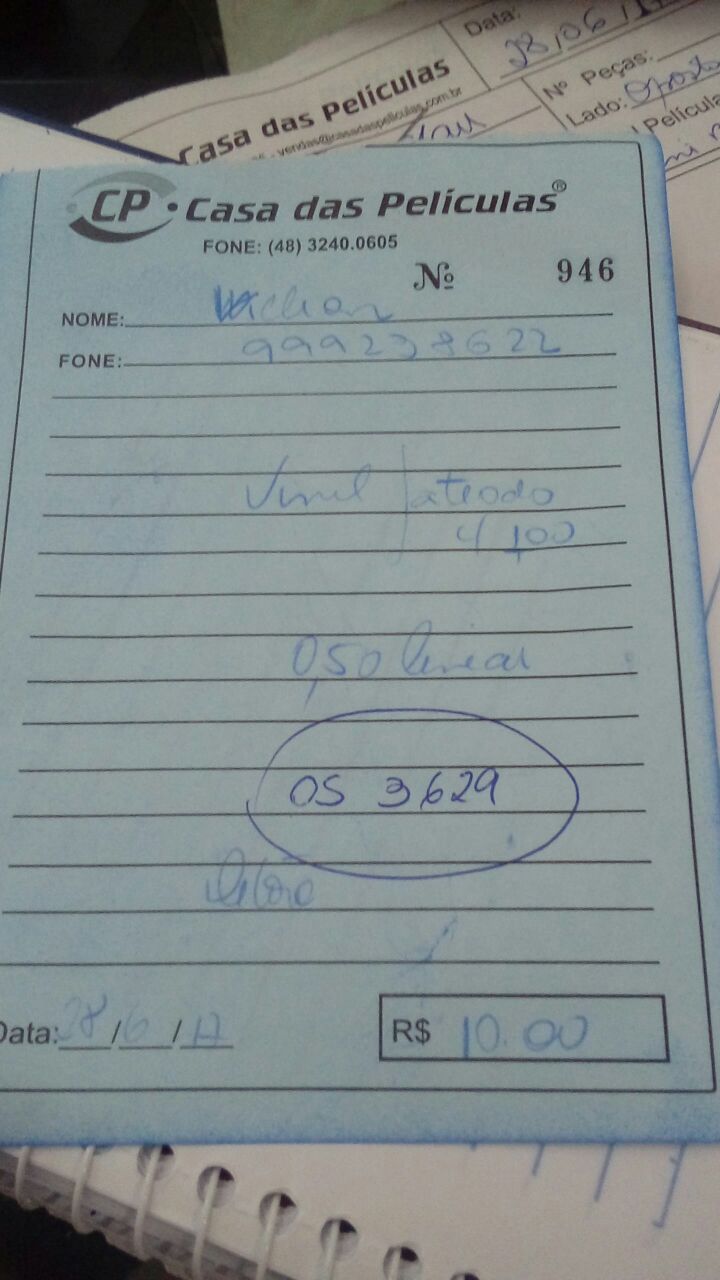 Data: 28/06/17
Casa das Películas
vendas@casadaspeliculas.com.br
Nº Peças:
Lado: Oposto
Película
CP · Casa das Películas®
FONE: (48) 3240.0605
Nº 946
NOME:
FONE: 999238622
Vinil Jateado
4/100
0,50 linear
OS 3629
Débito
Data: 28/6/17 R$ 10.00